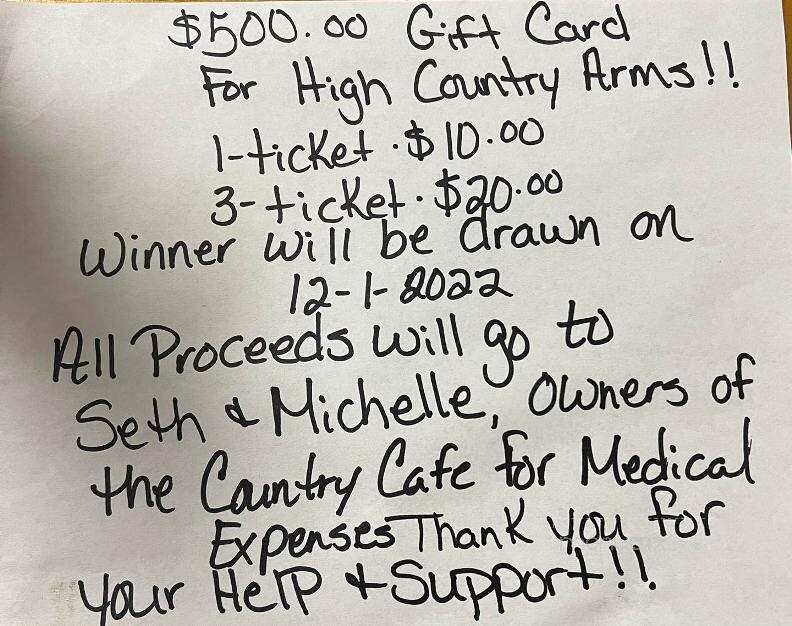 $500.00 Gift Card
For High Country Arms!!
1-ticket · $10.00
3-ticket · $20.00
Winner will be drawn on
12-1-2022
All Proceeds will go to
Seth & Michelle, Owners of
the Country Cafe for Medical
Expenses Thank you for
your Help + Support!!